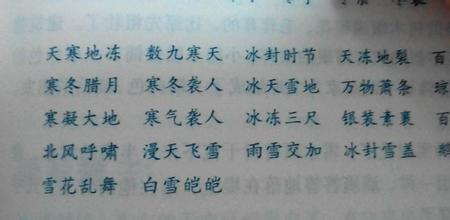 天寒地冻 数九寒天 冰封时节 天冻地裂 百
寒冬腊月 寒冬袭人 冰天雪地 万物萧条 琼
寒凝大地 寒气袭人 冰冻三尺 银装素裹 百
北风呼啸 漫天飞雪 雨雪交加 冰封雪盖
雪花乱舞 白雪皑皑